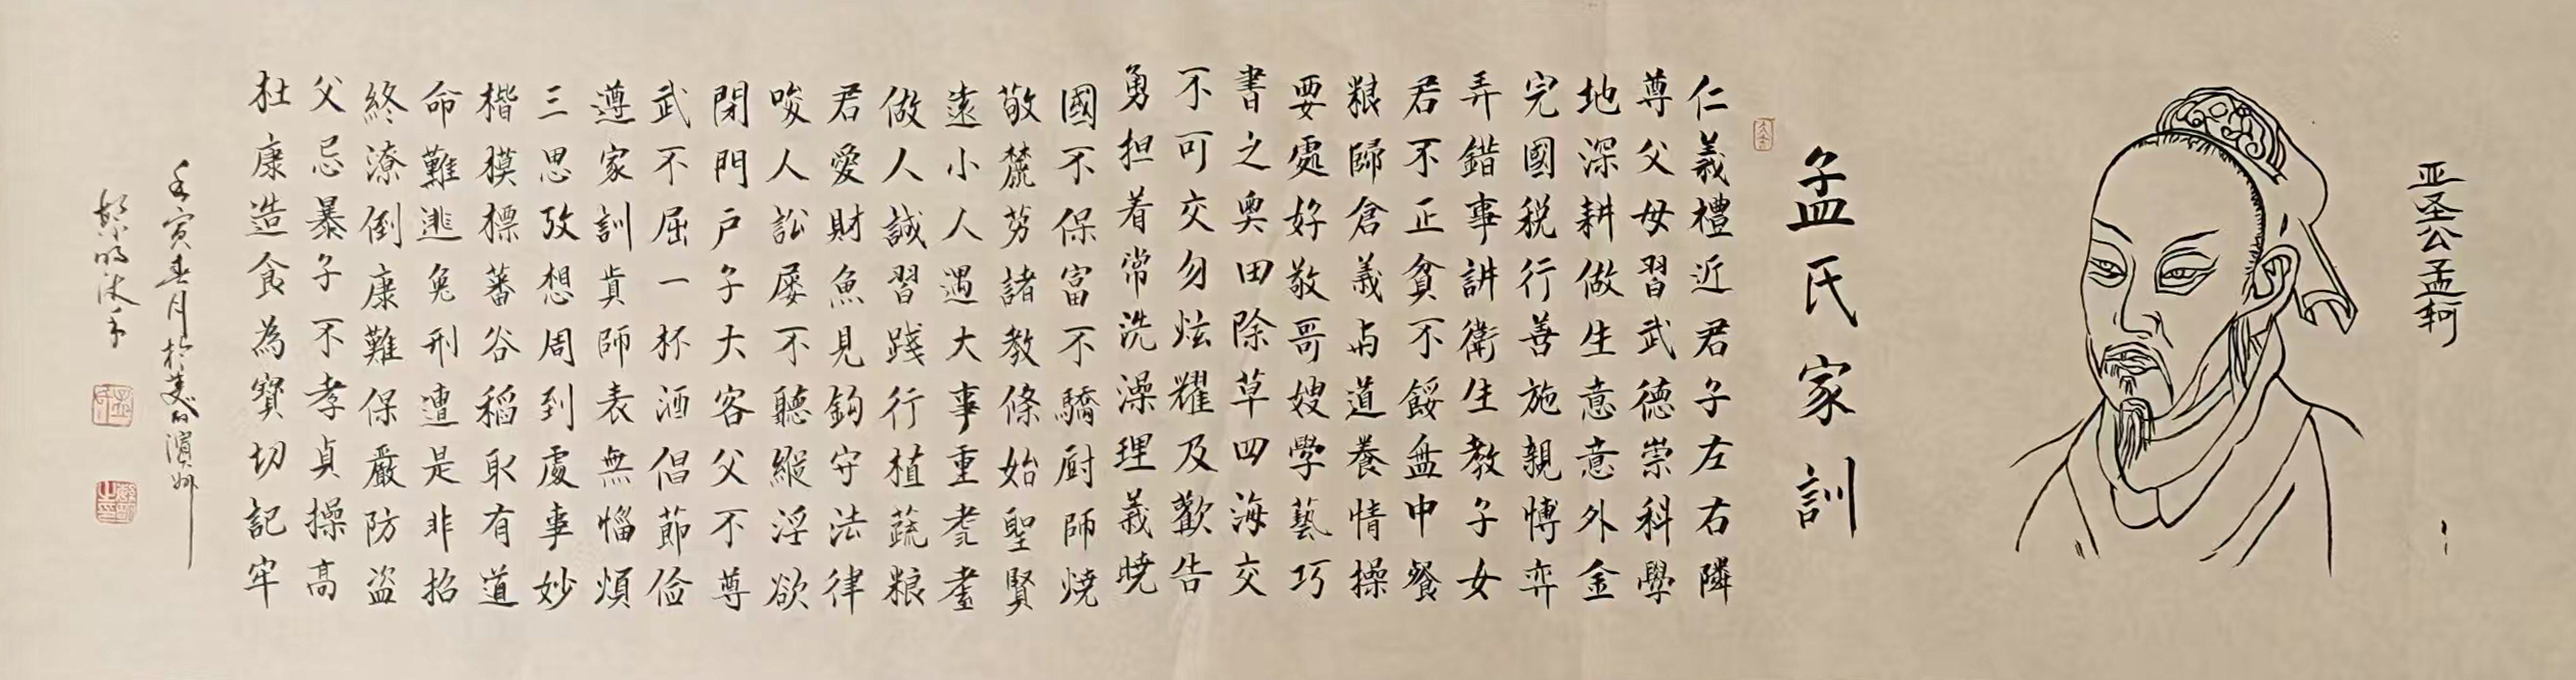 亚圣公孟轲
孟氏家訓
仁義禮近君子左右隣
尊父母習武德崇科學
地深耕做生意意外金
完國税行善施親愽弈
弄錯事講衛生教子女
君不正貧不餒盘中餐
粮歸倉義与道養情操
要處好敬哥嫂學藝巧
書之奥田除草四海交
不可交勿炫耀及歡告
勇担着常洗澡理義曉
國不保富不驕厨師燒
敬諸教條始聖賢
遠小人遇大事重耄耋
做人誠習踐行植蔬粮
君愛財魚見鈎守法律
唆人訟屡不聽縱淫欲
閉門户子大客父不尊
武不屈一杯酒倡節俭
遵家訓真師表無惱煩
三思攷想周到處事妙
楷模標蕃谷稻取有道
命難逃免刑遭是非招
終潦倒康難保嚴防盗
父忌暴子不孝貞操高
杜康造食為寶切記牢
壬寅春月於濱州